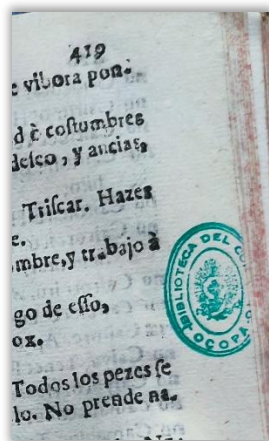 419
e vibora pon-
d è costumbres
deseo, y ancias,
Triscar. Hazer
e.
mbre, y trabajo à
go de esso,
ox.
Todos los pezes se
lo. No prende na-
BIBLIOTECA DEL CO
OCOPA